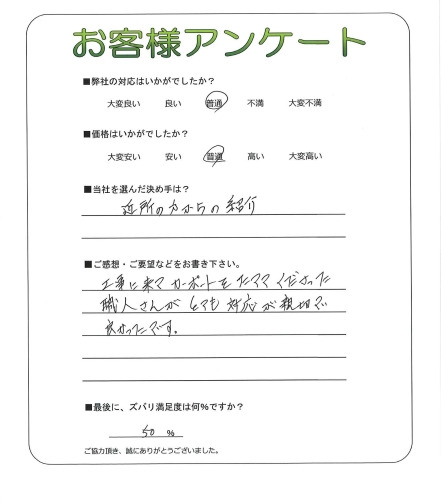 お客様アンケート
■弊社の対応はいかがでしたか？
大変良い 良い 普通 不満 大変不満
■価格はいかがでしたか？
大変安い 安い 普通 高い 大変高い
■当社を選んだ決め手は？
近所の方からの紹介
■ご感想・ご要望などをお書き下さい。
工事に来て カーポートを たてて くださった
職人さんが とても 対応が 親切で
良かったです。
■最後に、ズバリ満足度は何％ですか？
50 ％
ご協力頂き、誠にありがとうございました。